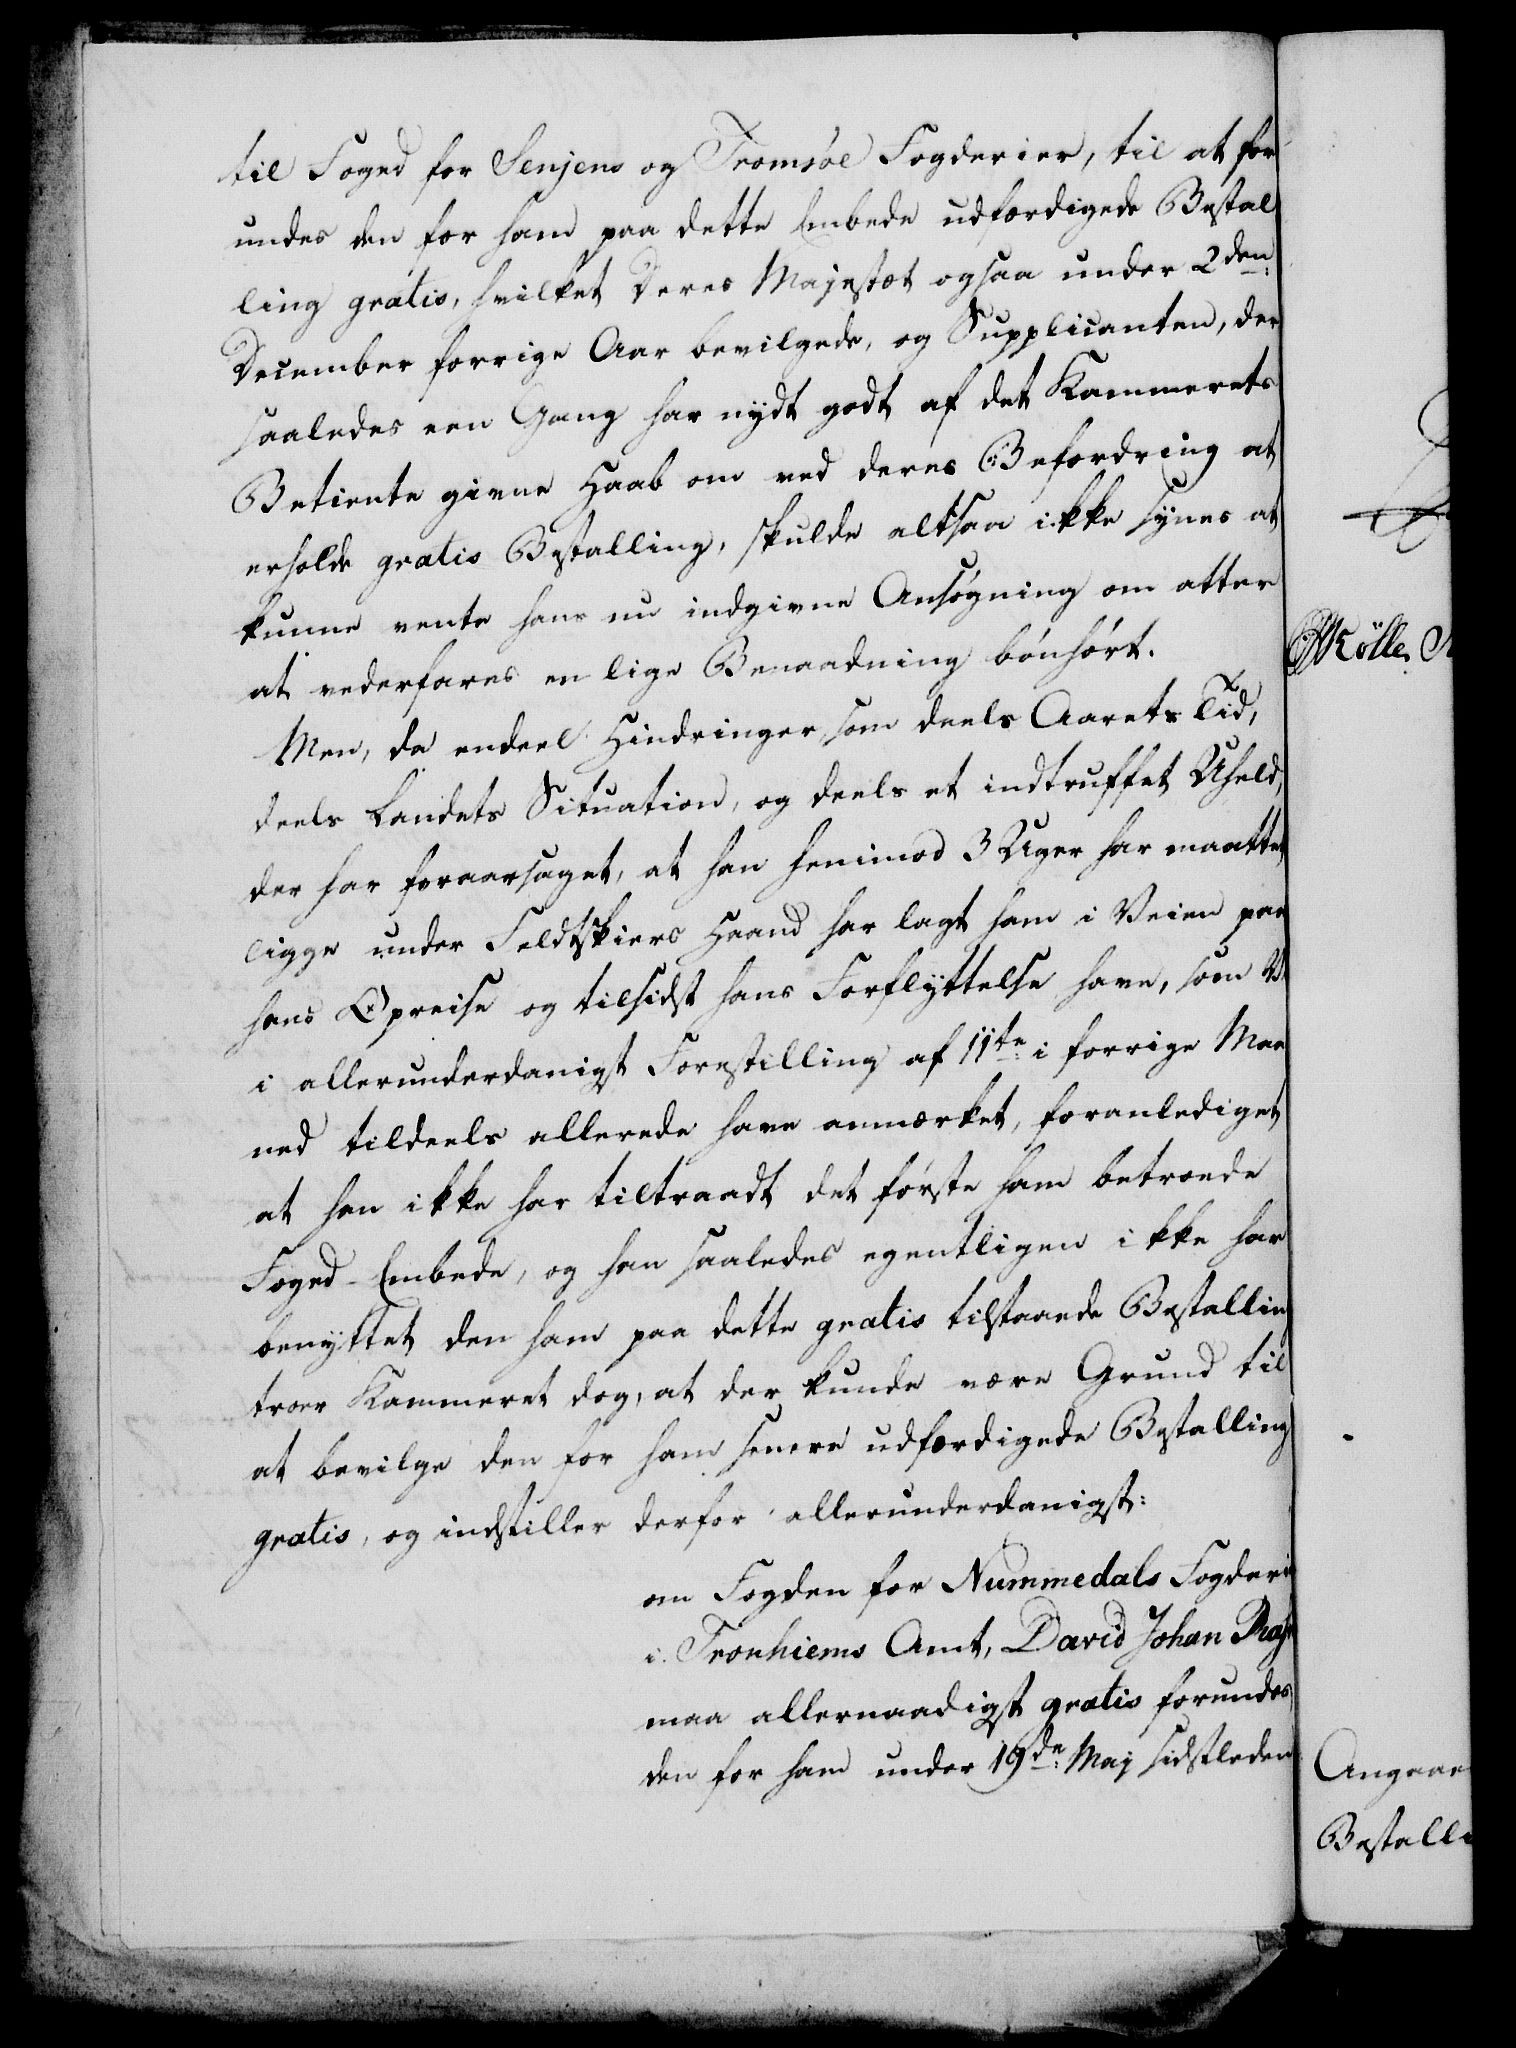 til Foged for Senjens og Tromsöe Fogderier, til at for
undes den for ham paa dette Embede udfærdigede Bestal
ling gratis, hvilket Deres Majestæt ogsaa under 2den
December forrige Aar bevilgede, og Supplicanten, der
saaledes een Gang har nydt godt af det Kammerets
Betiente givne Haab om ved deres Befordring at
erholde gratis Bestalling, skulde altsaa ikke synes at
kunne vente hans nu indgivne Ansögning om atter
at vederfares en lige Benaadning bönhört.
Men, da endeel Hindringer, som deels Aarets Tid,
deels Landets Situation, og deels et indtruffet Uheld,
der har foraarsaget, at han henimod 3 Uger har maattet
ligge under Feldtskiers Haand har lagt ham i Veien paa
hans Opreise og tilsidst hans Forflyttelse have, som Vi
i allerunderdanigst Forestilling af 11te i forrige Maa
ned tildeels allerede have anmærket, foranlediget,
at han ikke har tiltraadt det förste ham betroede
Foged-Embede, og han saaledes egentligen ikke har
benyttet den ham paa dette gratis tilstaaede Bestalling
troer Kammeret dog, at der kunde være Grund til
at bevilge den for ham senere udfærdigede Bestalling
gratis, og indstiller derfor allerunderdanigst:
om Fogden for Nummedals Fogderi
i Tronhiems Amt, David Johan
maa allernaadigst gratis forundes,
den for ham under 19de Maj sidstleden
Angaae
Bestalli